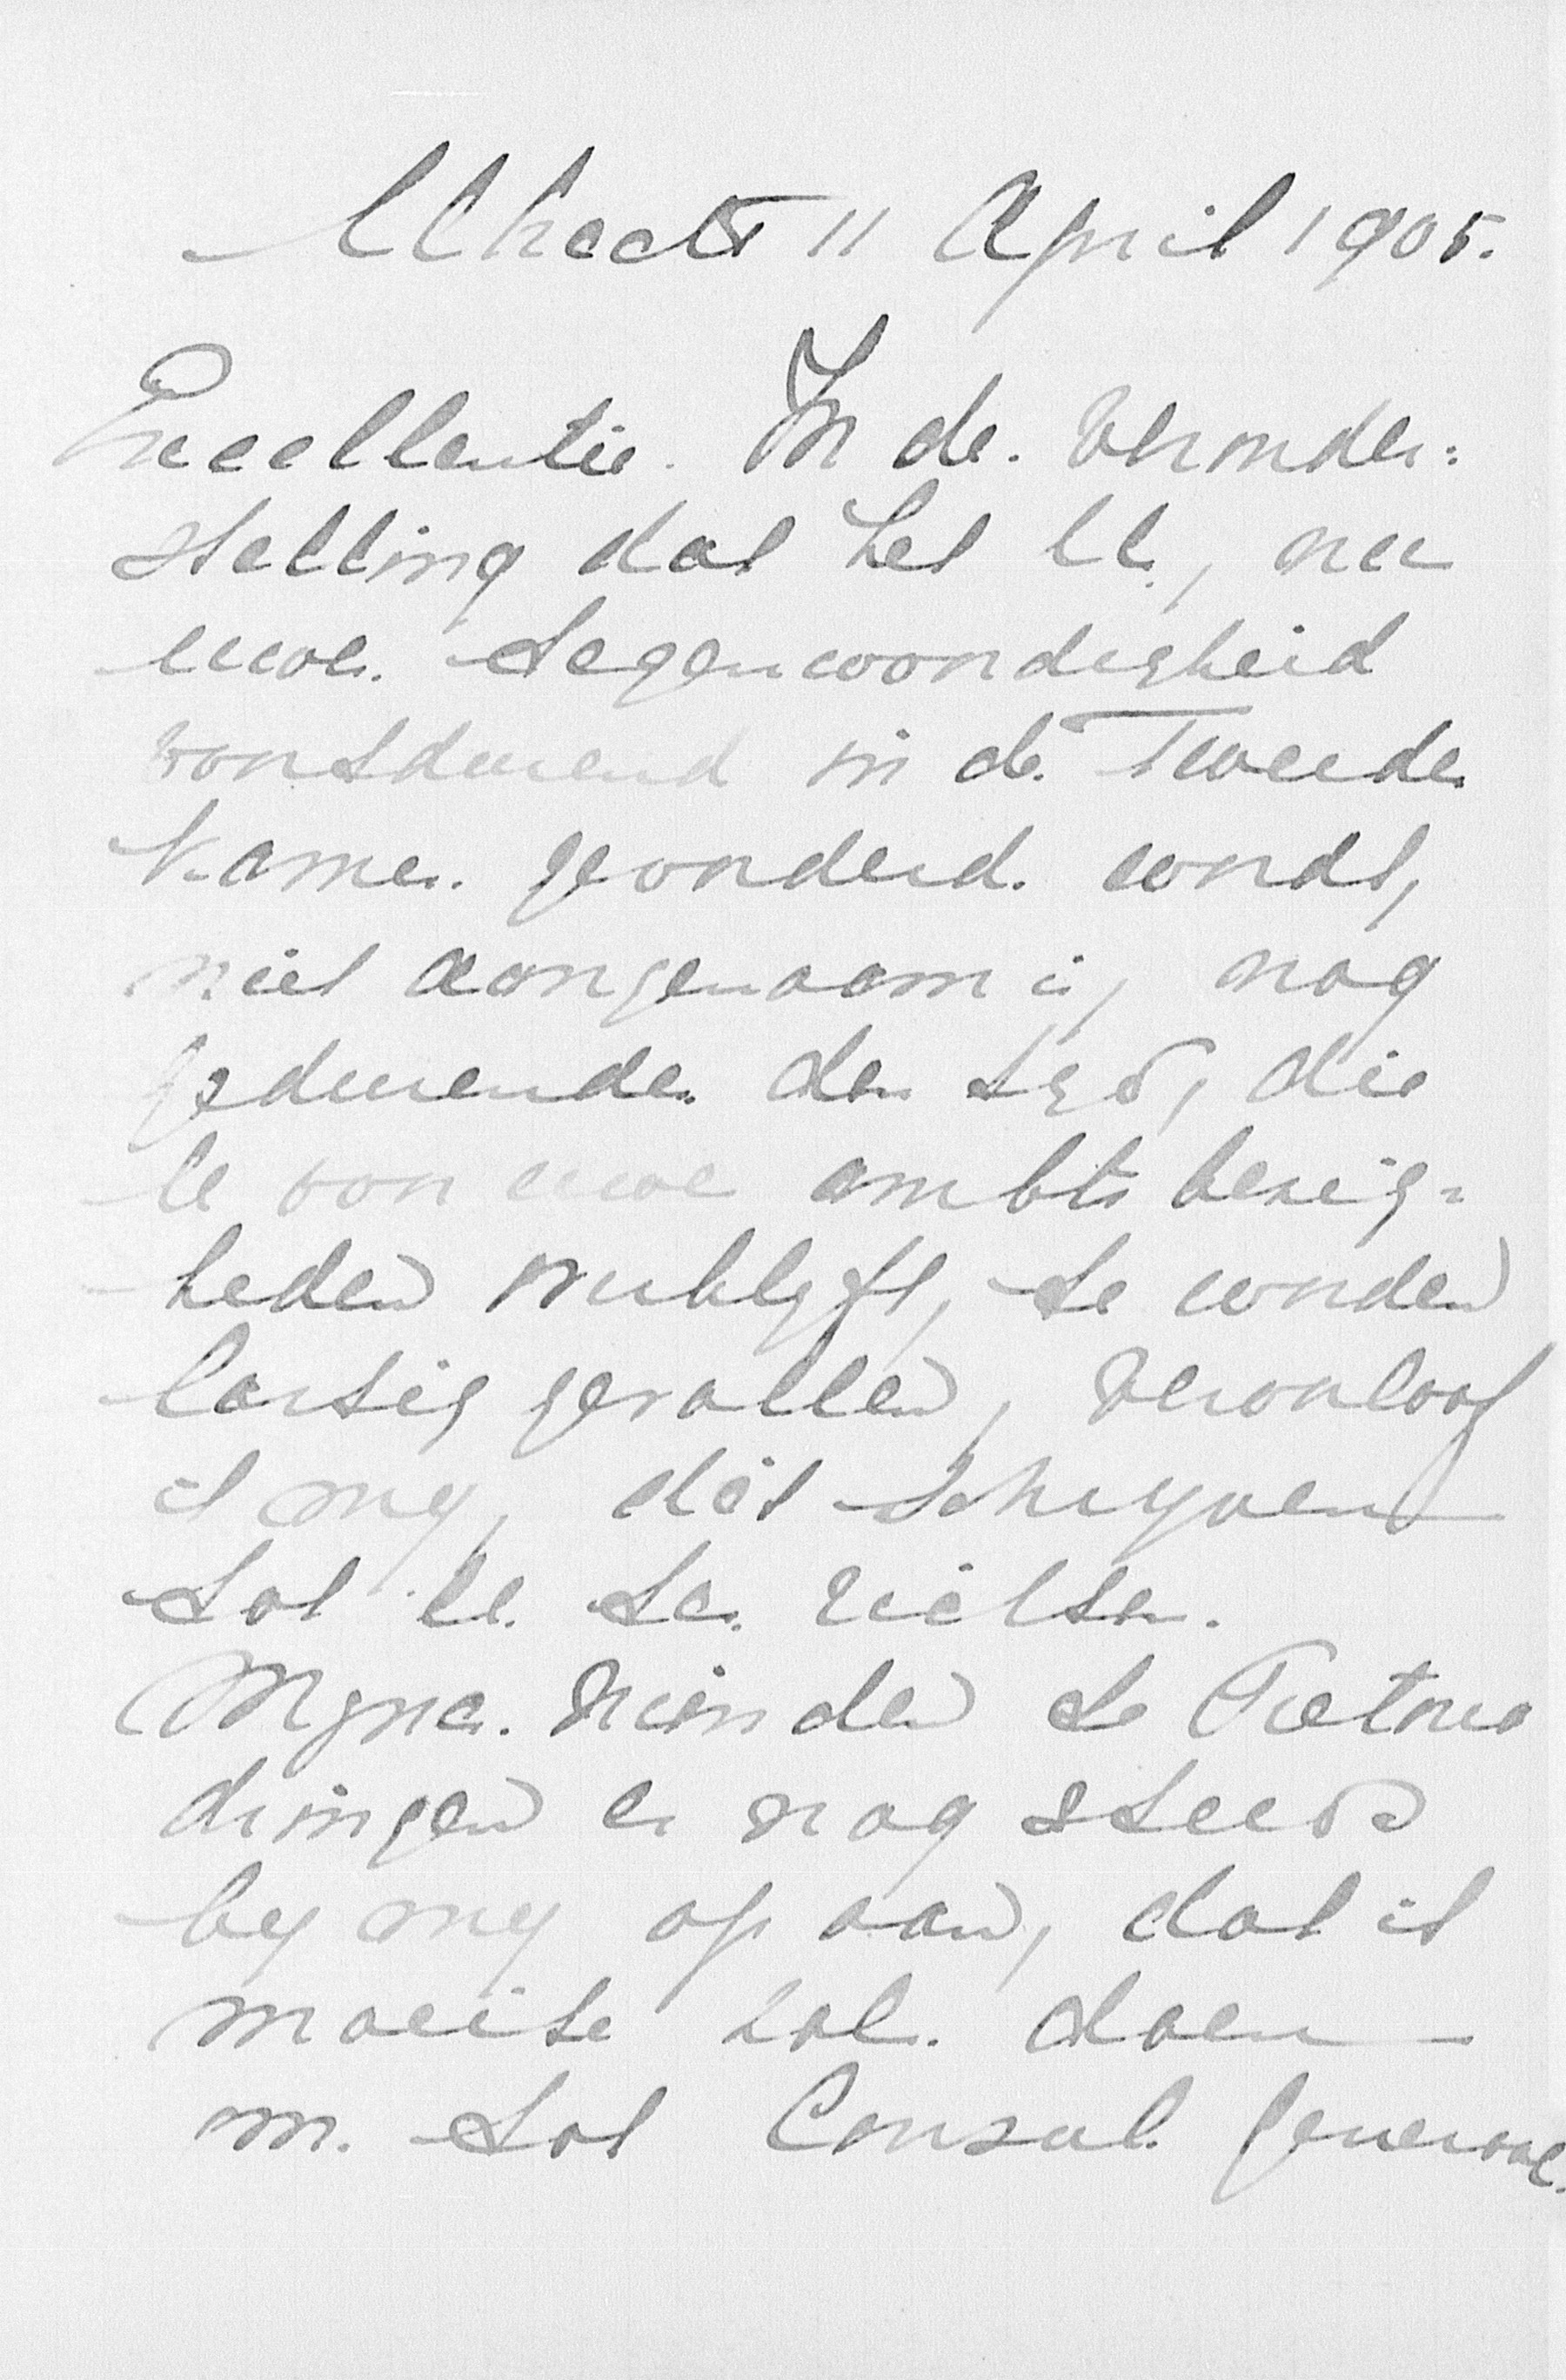 Utrecht 11 April 1905.
Excellentie. In de veronder=
stelling dat het U., nu
uwe tegenwoordigheid
voortdurend in de Tweede
Kamer gevorderd wordt,
niet aangenaam is, nog
gedurende den tyd, die
U van uwe ambtsbezig=
heden overblyft, te worden
lastig gevallen, veroorloof
ik my, dit schryven
tot U te richten.
Myne vrienden te Pretoria
dringen er nog steeds
by my op aan, dat ik
moeite zal doen
om tot Consul Generaal